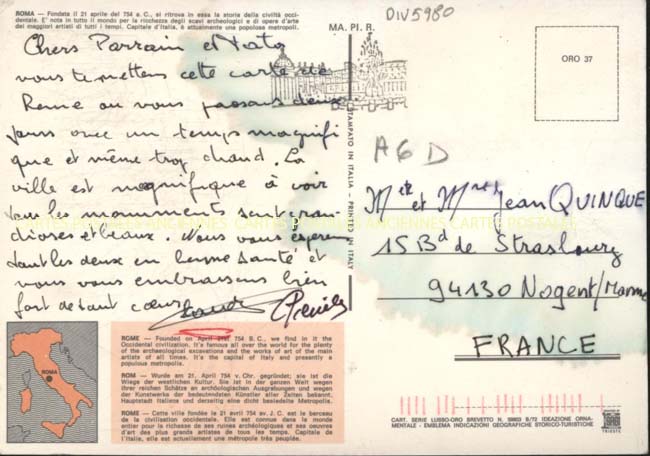 ROMA — Fondata il 21 aprile del 754 a. C., si ritrova in essa la storia della civiltà occi-
dentale. E' nota in tutto il mondo per la ricchezza degli scavi archeologici e di opere d'arte
dei maggiori artisti di tutti i tempi. Capitale d'Italia, è attualmente una popolosa metropoli.
Chers Parrain et Nato
vous transmettons cette carte de
Rome ou nous passons deux
jours avec un temps magnifi
que et même trop chaud. La
ville est magnifique à voir
tous les monuments sont gran
dioses et beaux. Nous vous espérons
tout les deux en bonne santé et
nous vous embrassons bien
fort de tout cœur
MA. PI. R.
DIV5980
STAMPATO IN ITALIA - PRINTED IN ITALY
ORO 37
A6D
et Jean QUINQUE
15 Bd de Strasbourg
94130 Nogent/Marne
FRANCE
ANCIENNES CARTES POSTALES ANCIENNES CARTES POSTALES
ROMA
ROME — Founded on April 21st 754 B. C., we find in it the
Occidental civilization. It's famous all over the world for the plenty
of the archaeological excavations and the works of art of the main
artists of all times. It's the capital of Italy and presently a
populous metropolis.
ROM — Wurde am 21. April 754 v. Chr. gegründet; sie ist die
Wiege der westlichen Kultur. Sie ist in der ganzen Welt wegen
ihrer reichen Schätze an archäologischen Ausgrabungen und wegen
der Kunstwerke der bedeutendsten Künstler aller Zeiten bekannt.
Hauptstadt Italiens und derzeitig eine dicht besiedelte Metropole.
ROME — Cette ville fondée le 21 avril 754 av. J. C. est le berceau
de la civilisation occidentale. Elle est connue dans le monde
entier pour la richesse de ses ruines archéologiques et ses oeuvres
d'art des plus grands artistes de tous les temps. Capitale de
l'Italie, elle est actuellement une métropole très peuplée.
CART. SERIE LUSSO-ORO BREVETTO N. 59953 B/72 IDEAZIONE ORNA-
MENTALE - EMBLEMA INDICAZIONI GEOGRAFICHE STORICO-TURISTICHE
TRIESTE